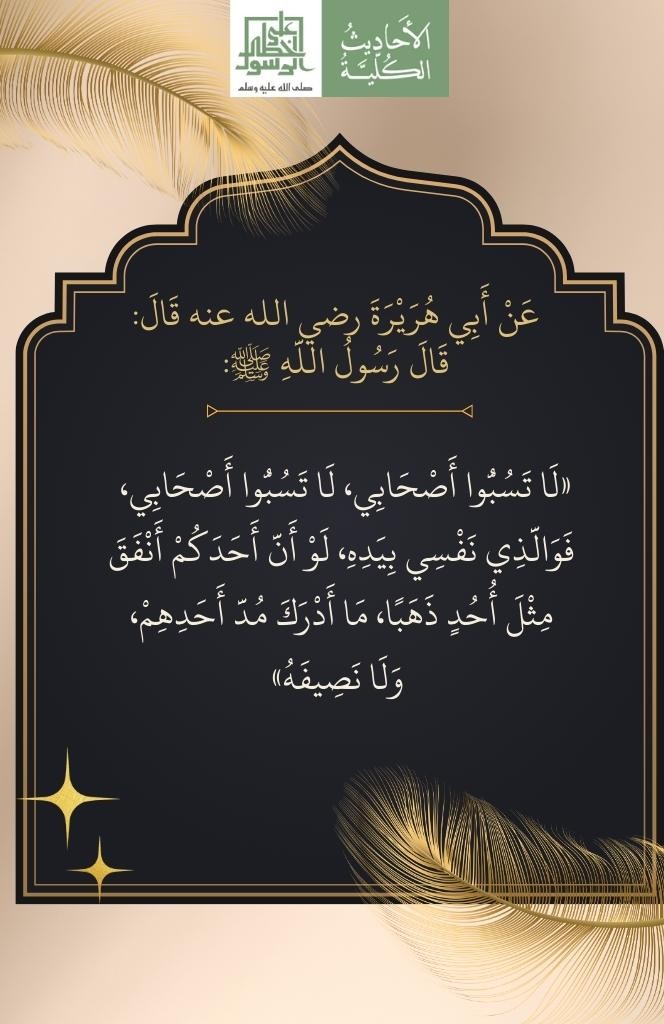 الأَحَادِيثُ
الكُلِّيَّةُ
على
خطى
الرسول
صلى الله عليه وسلم
عَنْ أَبِي هُرَيْرَةَ رضي الله عنه قَالَ:
قَالَ رَسُولُ اللّهِ ﷺ:
«لَا تَسُبُّوا أَصْحَابِي، لَا تَسُبُّوا أَصْحَابِي،
فَوَالّذِي نَفْسِي بِيَدِهِ، لَوْ أَنّ أَحَدَكُمْ أَنْفَقَ
مِثْلَ أُحُدٍ ذَهَبًا، مَا أَدْرَكَ مُدّ أَحَدِهِمْ،
وَلَا نَصِيفَهُ»